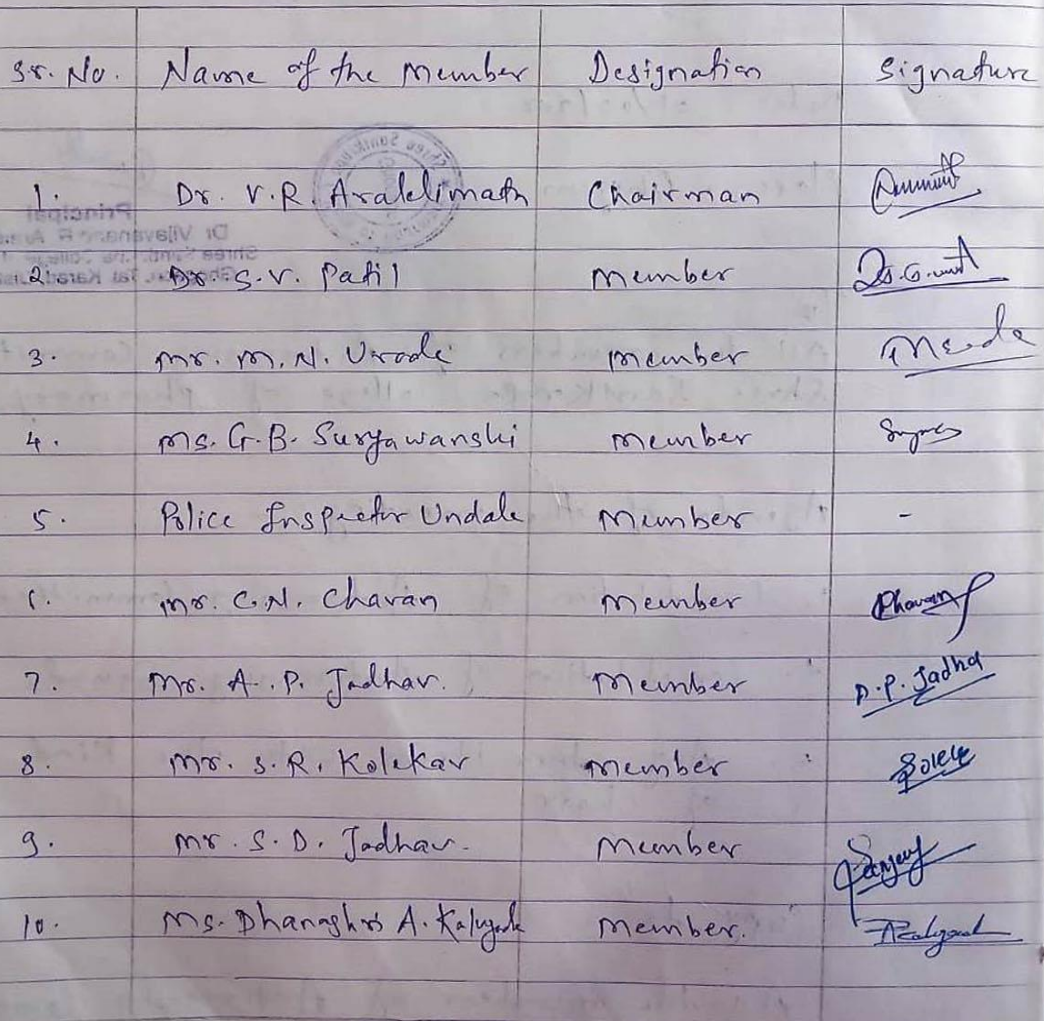 Sr. No. Name of the Member Designation Signature
1. Dr. V.R. Aralelimath Chairman
2. Dr. S.V. Patil Member
3. Mr. M.N. Urade Member
4. Ms. G.B. Suryawanshi Member
5. Police Inspector Undale Member -
Mr. C.N. Chavan Member Chavan
7. Mr. A.P. Jadhav. Member A.P. Jadhav
8. Mr. S.R. Kolekar Member
9. Mr. S.D. Jadhav. Member
10. Ms. Dhanashri A. Member.